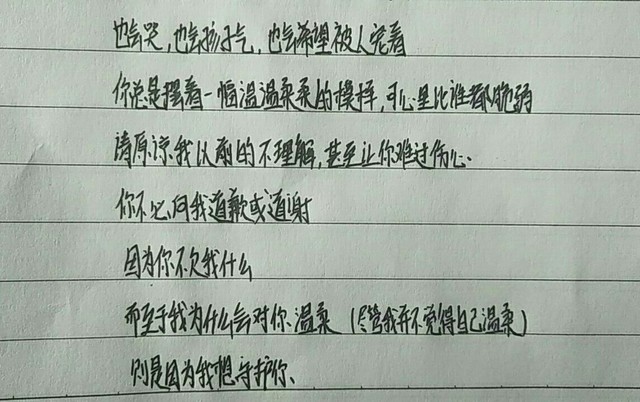 也会哭，也会孩子气，也会希望被人宠着
你总是摆着一幅温温柔柔的模样，可心里比谁都脆弱
请原谅我以前的不理解，甚至让你难过伤心.
你不必向我道歉或道谢
因为你不欠我什么
而至于我为什么会对你温柔（尽管我并不觉得自己温柔）
则是因为我想守护你、